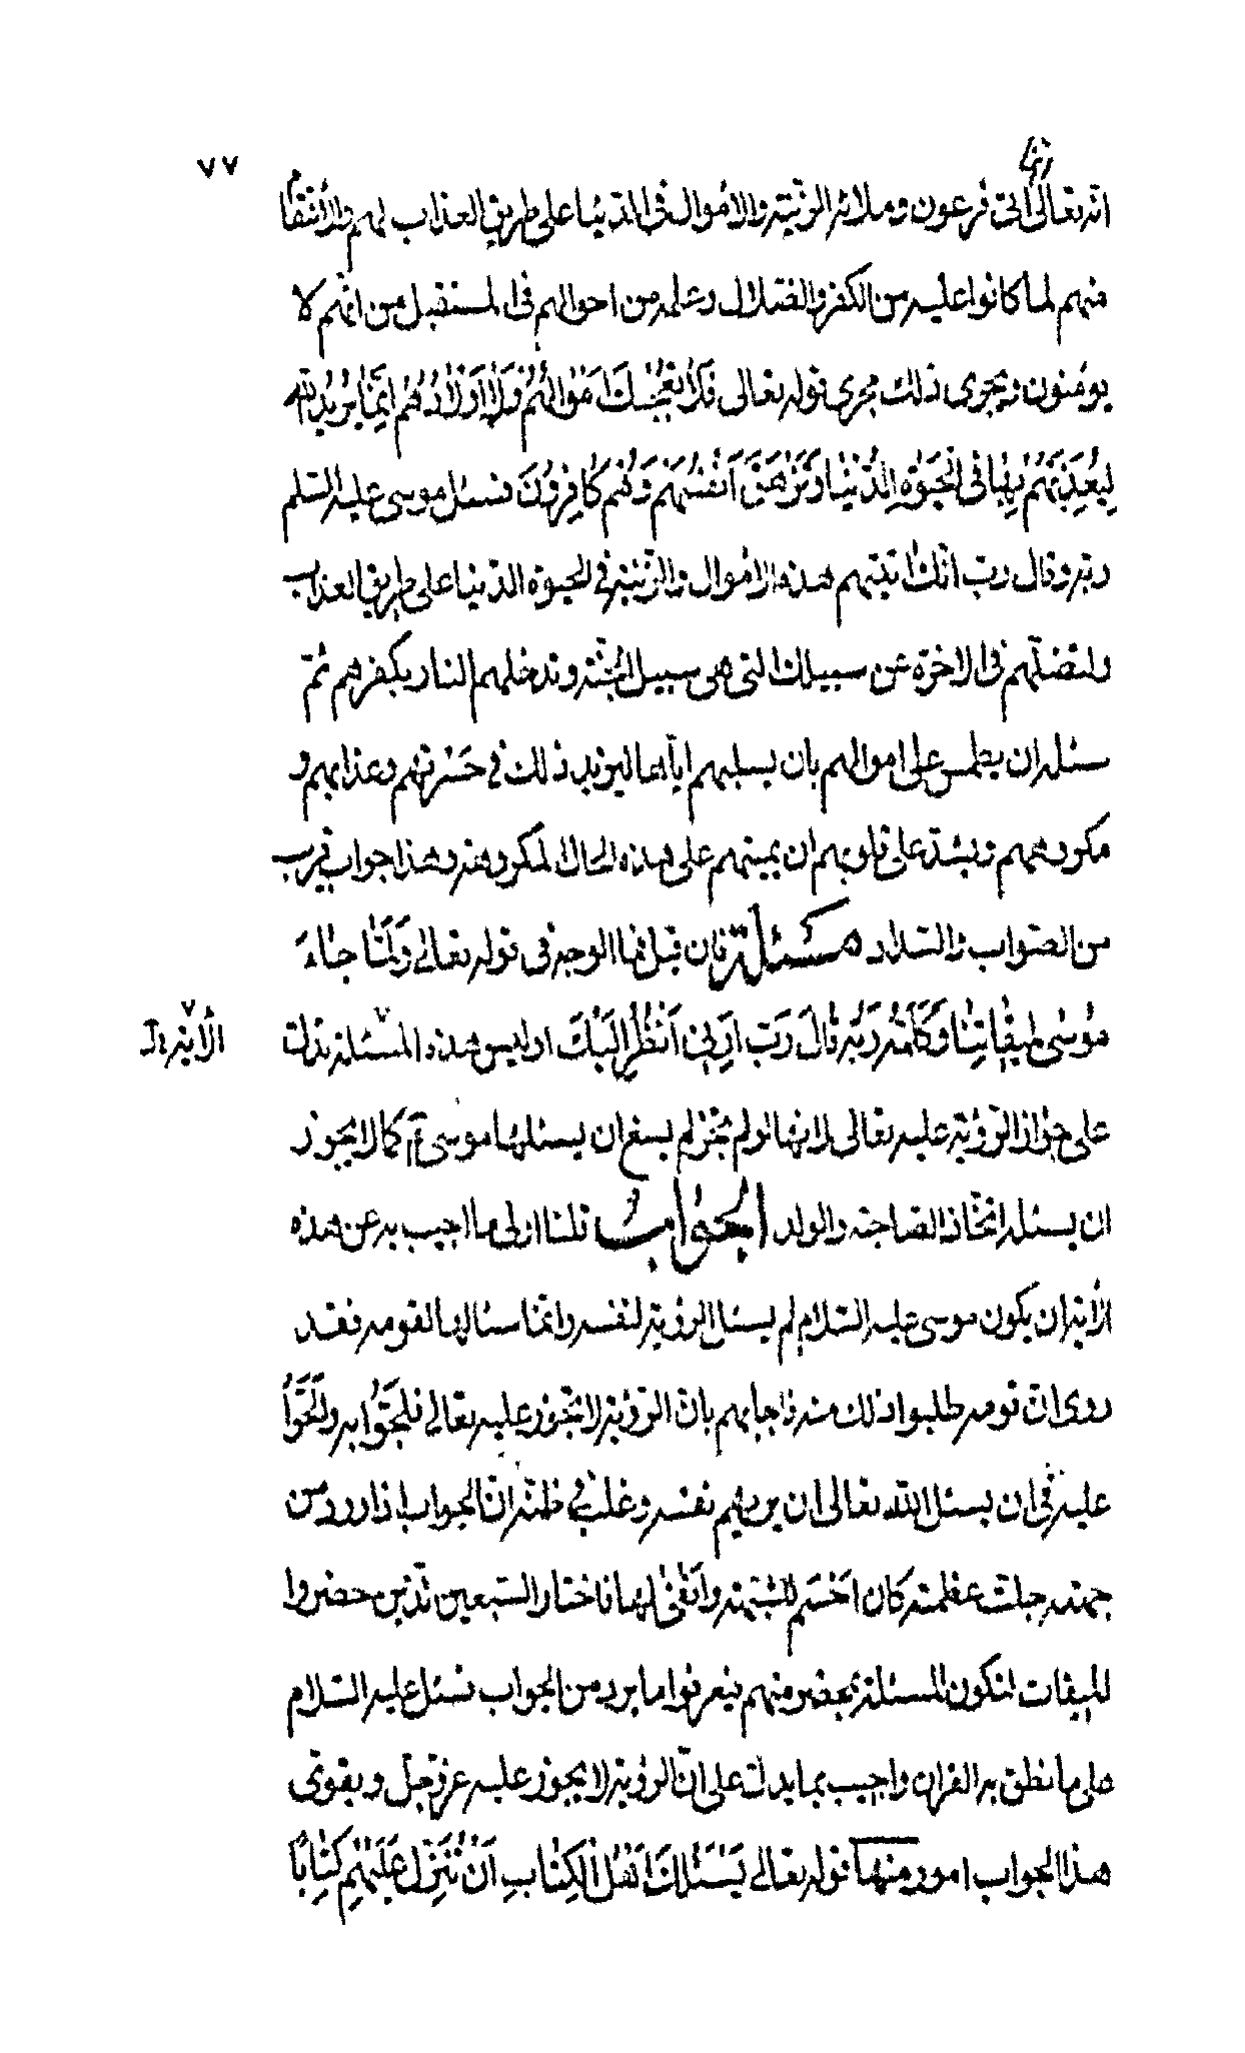 ٧٧
انه تعالى اتى فرعون وملائه الزينة والاموال فى الدنيا على طريق العذاب لهم والانتقام
منهم لما كانوا عليه من الكفر والضلال وعلمه من احوالهم فى المستقبل من انهم لا
يومنون ويجرى ذلك مجرى قوله تعالى فَلَا تُعْجِبْكَ اَمْوَالُهُمْ وَلَا اَوْلَادُهُمْ اِنَّمَا يُرِيدُ اللّٰه
لِيُعَذِّبَهُمْ بِهَا فِى الْحَيٰوةِ الدُّنْيَا وَتَزْهَقَ اَنْفُسُهُمْ وَهُمْ كَافِرُونَ فسئل موسى عليه السلم
ربه وقال رب انك اتيتهم هذه الاموال والزينة فى الحيوة الدنيا على طريق العذاب
ولتضلهم فى الاخرة عن سبيلك التى هى سبيل الجنة وتدخلهم النار بكفرهم ثم
سئله ان يطمس على اموالهم بان يسلبهم اياها ليزيد ذلك فى حسرتهم وعذابهم و
مكروههم ويشد على قلوبهم ان يميتهم على هذه الحال المكروهة وهذا جواب قريب
من الصواب والسداد مسئلة فان قيل فما الوجه فى قوله تعالى وَلَمَّا جَاءَ
مُوسٰى لِمِيقَاتِنَا وَكَلَّمَهُ رَبُّهُ قَالَ رَبِّ اَرِنِى اَنْظُرْ اِلَيْكَ اوليس هذه المسئلة تدل
الاية
على جواز الرؤية عليه تعالى لانها لو لم تجز لم يسغ ان يسئلها موسى ع كما لا يجوز
ان يسئله اتخاذ الصاحبة والولد الجواب قلنا اولى ما اجيب به عن هذه
الاية ان يكون موسى عليه السلام لم يسئل الرؤية لنفسه وانما سئالها لقومه فقد
روى ان قومه طلبوا ذلك منه فاجابهم بان الرؤية لا تجوز عليه تعالى فلجّوا به وَاَلَحّوا
عليه فى ان يسئل الله تعالى ان يريهم نفسه وغلب فى ظنه ان الجواب اذا ورد من
جهته جلت عظمته كان احسم للشبهة وانفى لها فاختار السبعين الذين حضروا
الميقات لتكون المسئلة بمحضر منهم فيعرفوا ما يرد من الجواب فسئل عليه السلام
على ما نطق به القران واجيب بما يدل على ان الرؤية لا يجوز عليه عز وجل ويقوى
هذا الجواب امور منها قوله تعالى يَسْئَلُكَ اَهْلُ الْكِتَابِ اَنْ تُنَزِّلَ عَلَيْهِمْ كِتَابًا